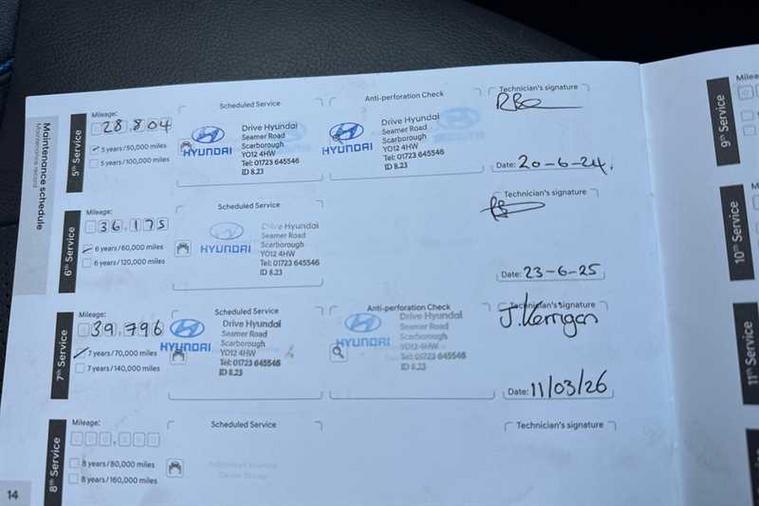 Maintenance schedule
Maintenance record
5th Service
Mileage:
28,804
5 years/50,000 miles
5 years/100,000 miles
Scheduled Service
HYUNDAI
Drive Hyundai
Seamer Road
Scarborough
YO12 4HW
Tel: 01723 645546
ID 8.23
Anti-perforation Check
HYUNDAI
Drive Hyundai
Seamer Road
Scarborough
YO12 4HW
Tel: 01723 645546
ID 8.23
Technician's signature
Date: 20-6-24.
6th Service
Mileage:
36,175
6 years/60,000 miles
6 years/120,000 miles
Scheduled Service
HYUNDAI
Drive Hyundai
Seamer Road
Scarborough
YO12 4HW
Tel: 01723 645546
ID 8.23
Technician's signature
Date: 23-6-25
7th Service
Mileage:
39,796
7 years/70,000 miles
7 years/140,000 miles
Scheduled Service
HYUNDAI
Drive Hyundai
Seamer Road
Scarborough
YO12 4HW
Tel: 01723 645546
ID 8.23
Anti-perforation Check
HYUNDAI
Drive Hyundai
Seamer Road
Scarborough
YO12 4HW
Tel: 01723 645546
ID 8.23
Technician's signature
J.Kerrigan
Date: 11/03/26
8th Service
Mileage:
8 years/80,000 miles
8 years/160,000 miles
Scheduled Service
Technician's signature
14
9th Service
10th Service
11th Service